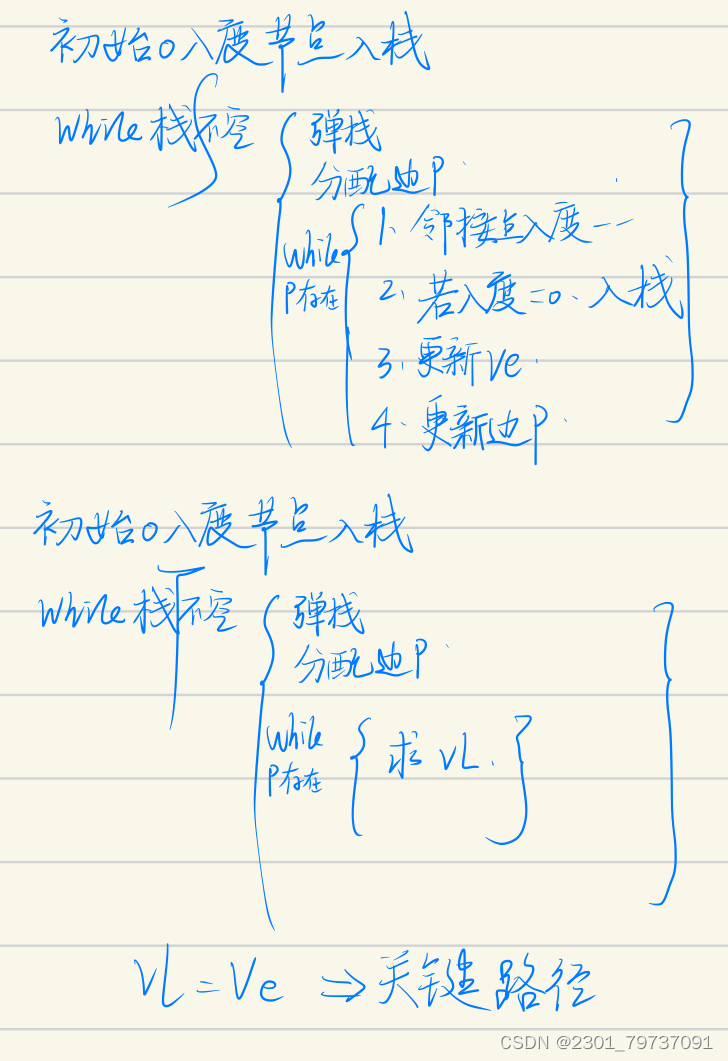 初始0入度节点入栈
While栈S不空 { 弹栈
分配边P.
While P存在 { 1、邻接点入度--
2、若入度=0、入栈
3、更新Ve.
4、更新边P. }
初始0入度节点入栈
While栈T不空 { 弹栈
分配边P.
While P存在 { 求VL. } }
VL=Ve ⇒关键路径
CSDN @2301_79737091